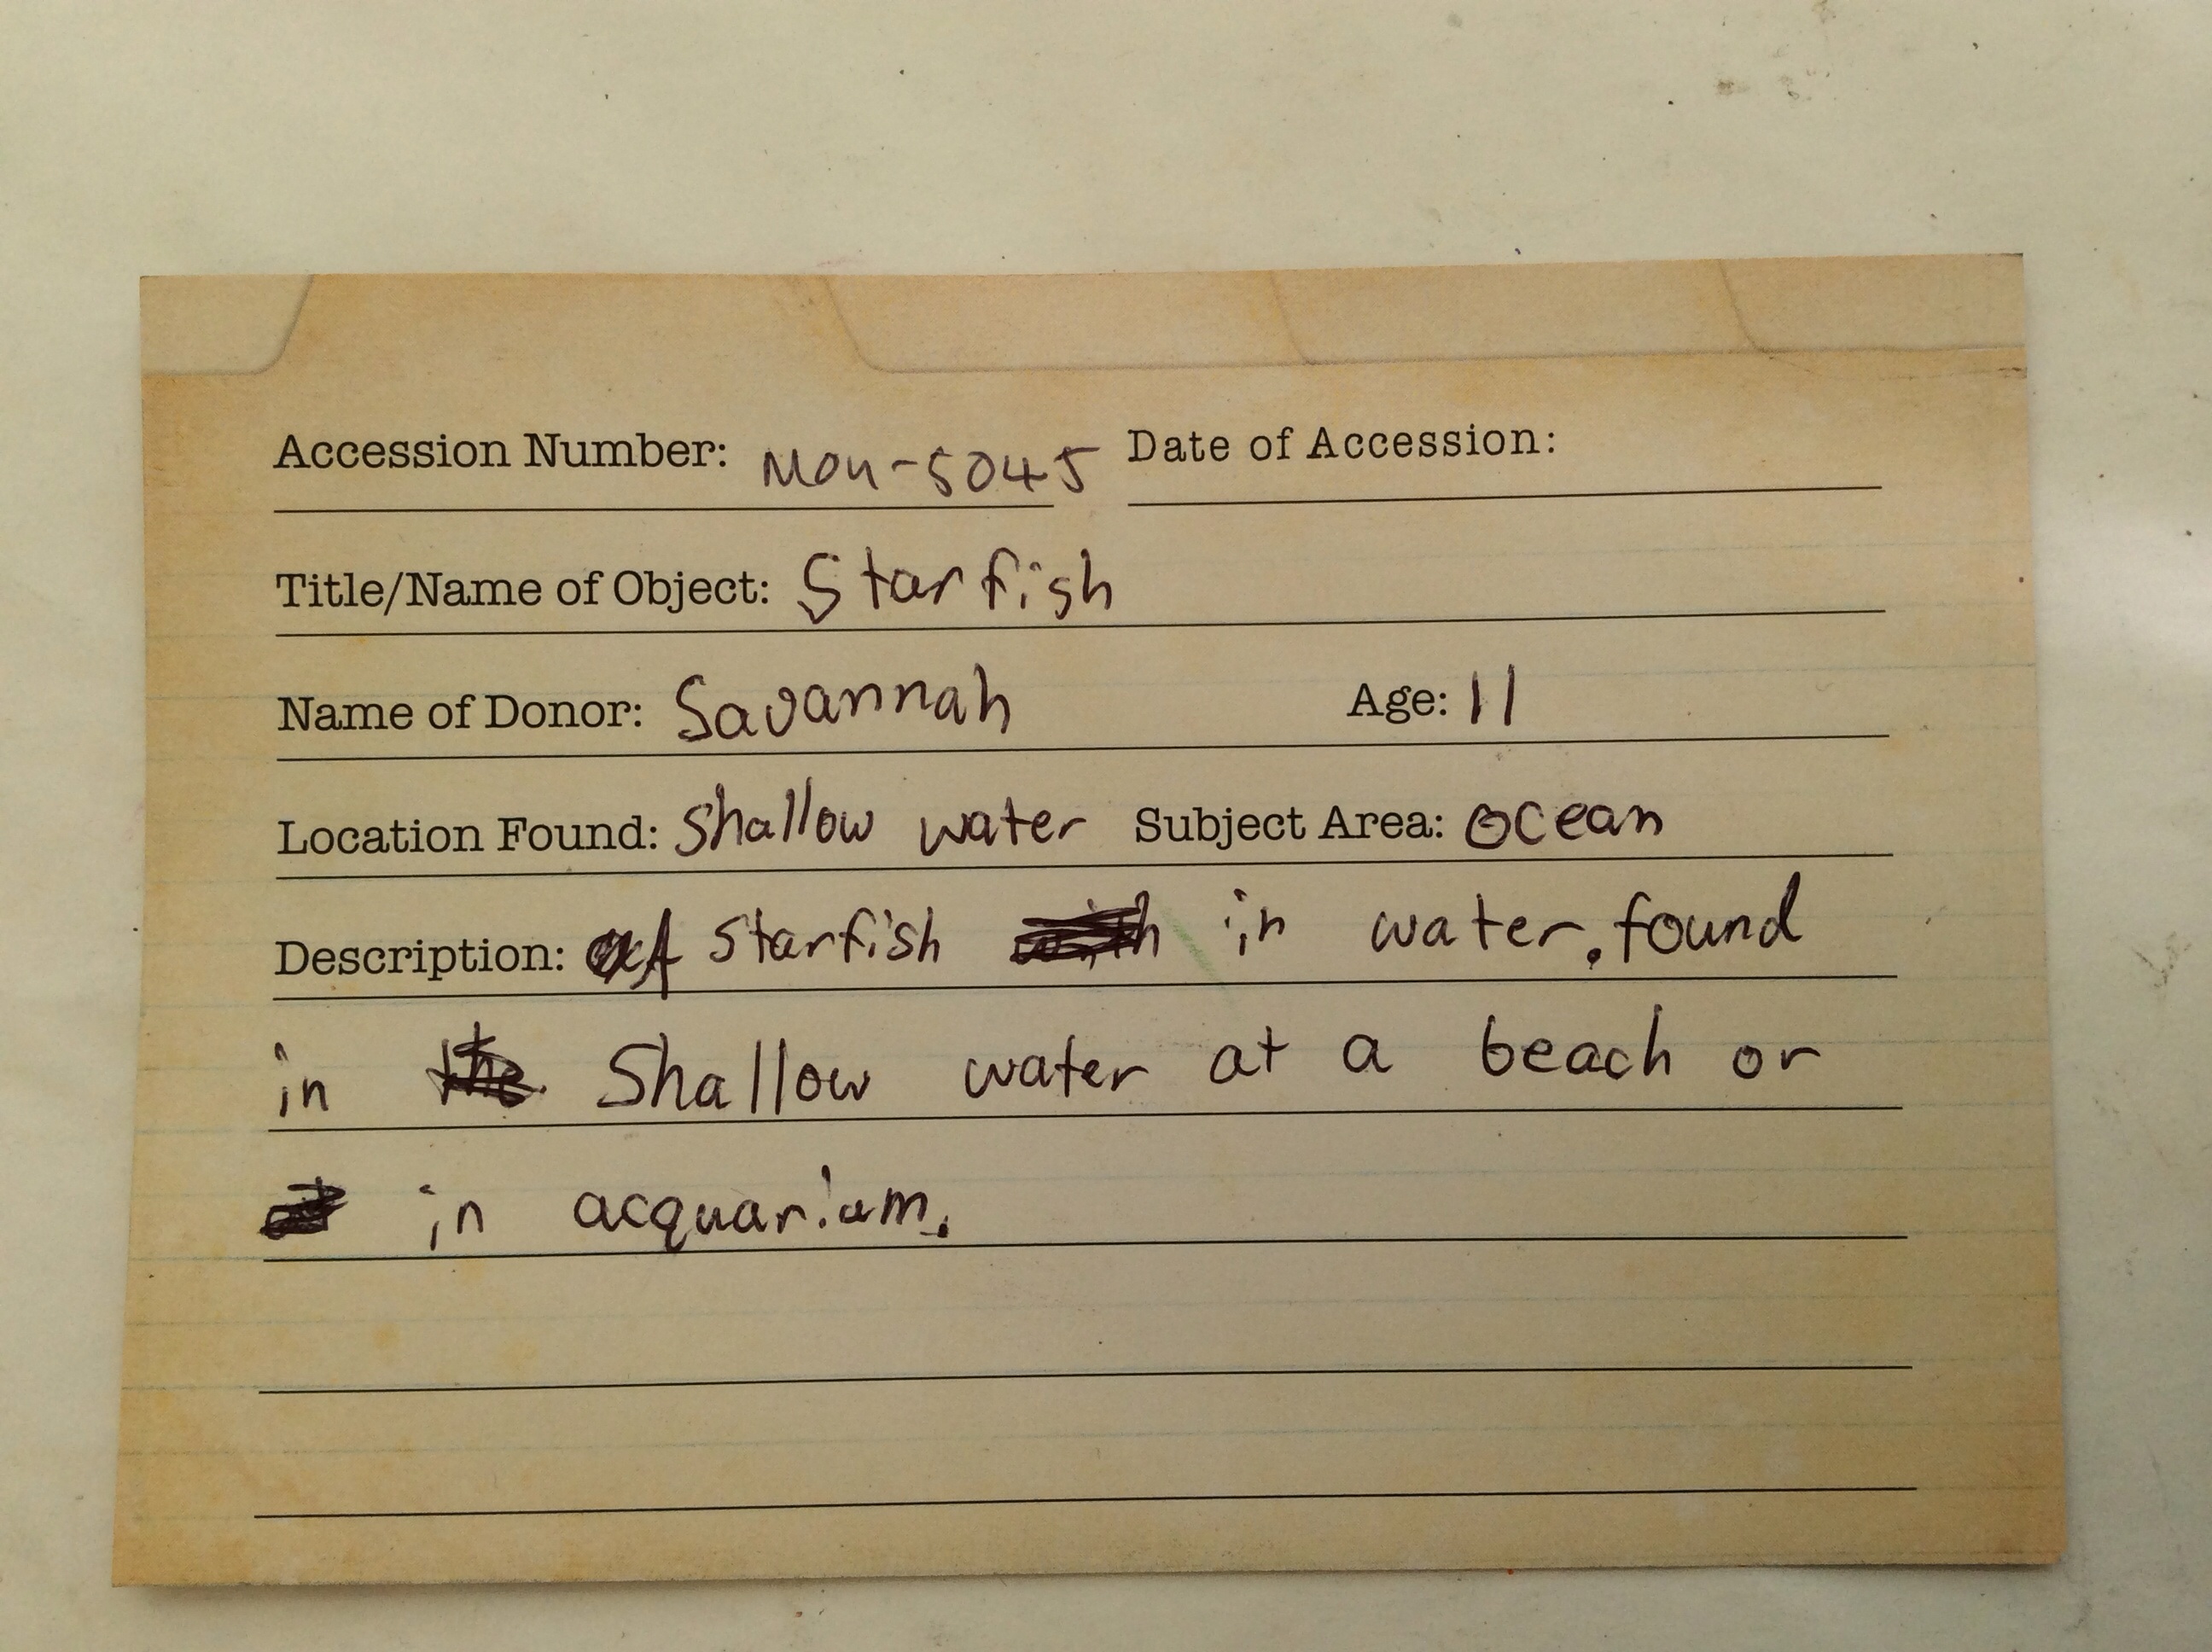 Accession Number: Mou-5045 Date of Accession:
Title/Name of Object: Starfish
Name of Donor: Savannah Age: 11
Location Found: shallow water Subject Area: ocean
Description: A starfish in water. found
in shallow water at a beach or
in acquarium.